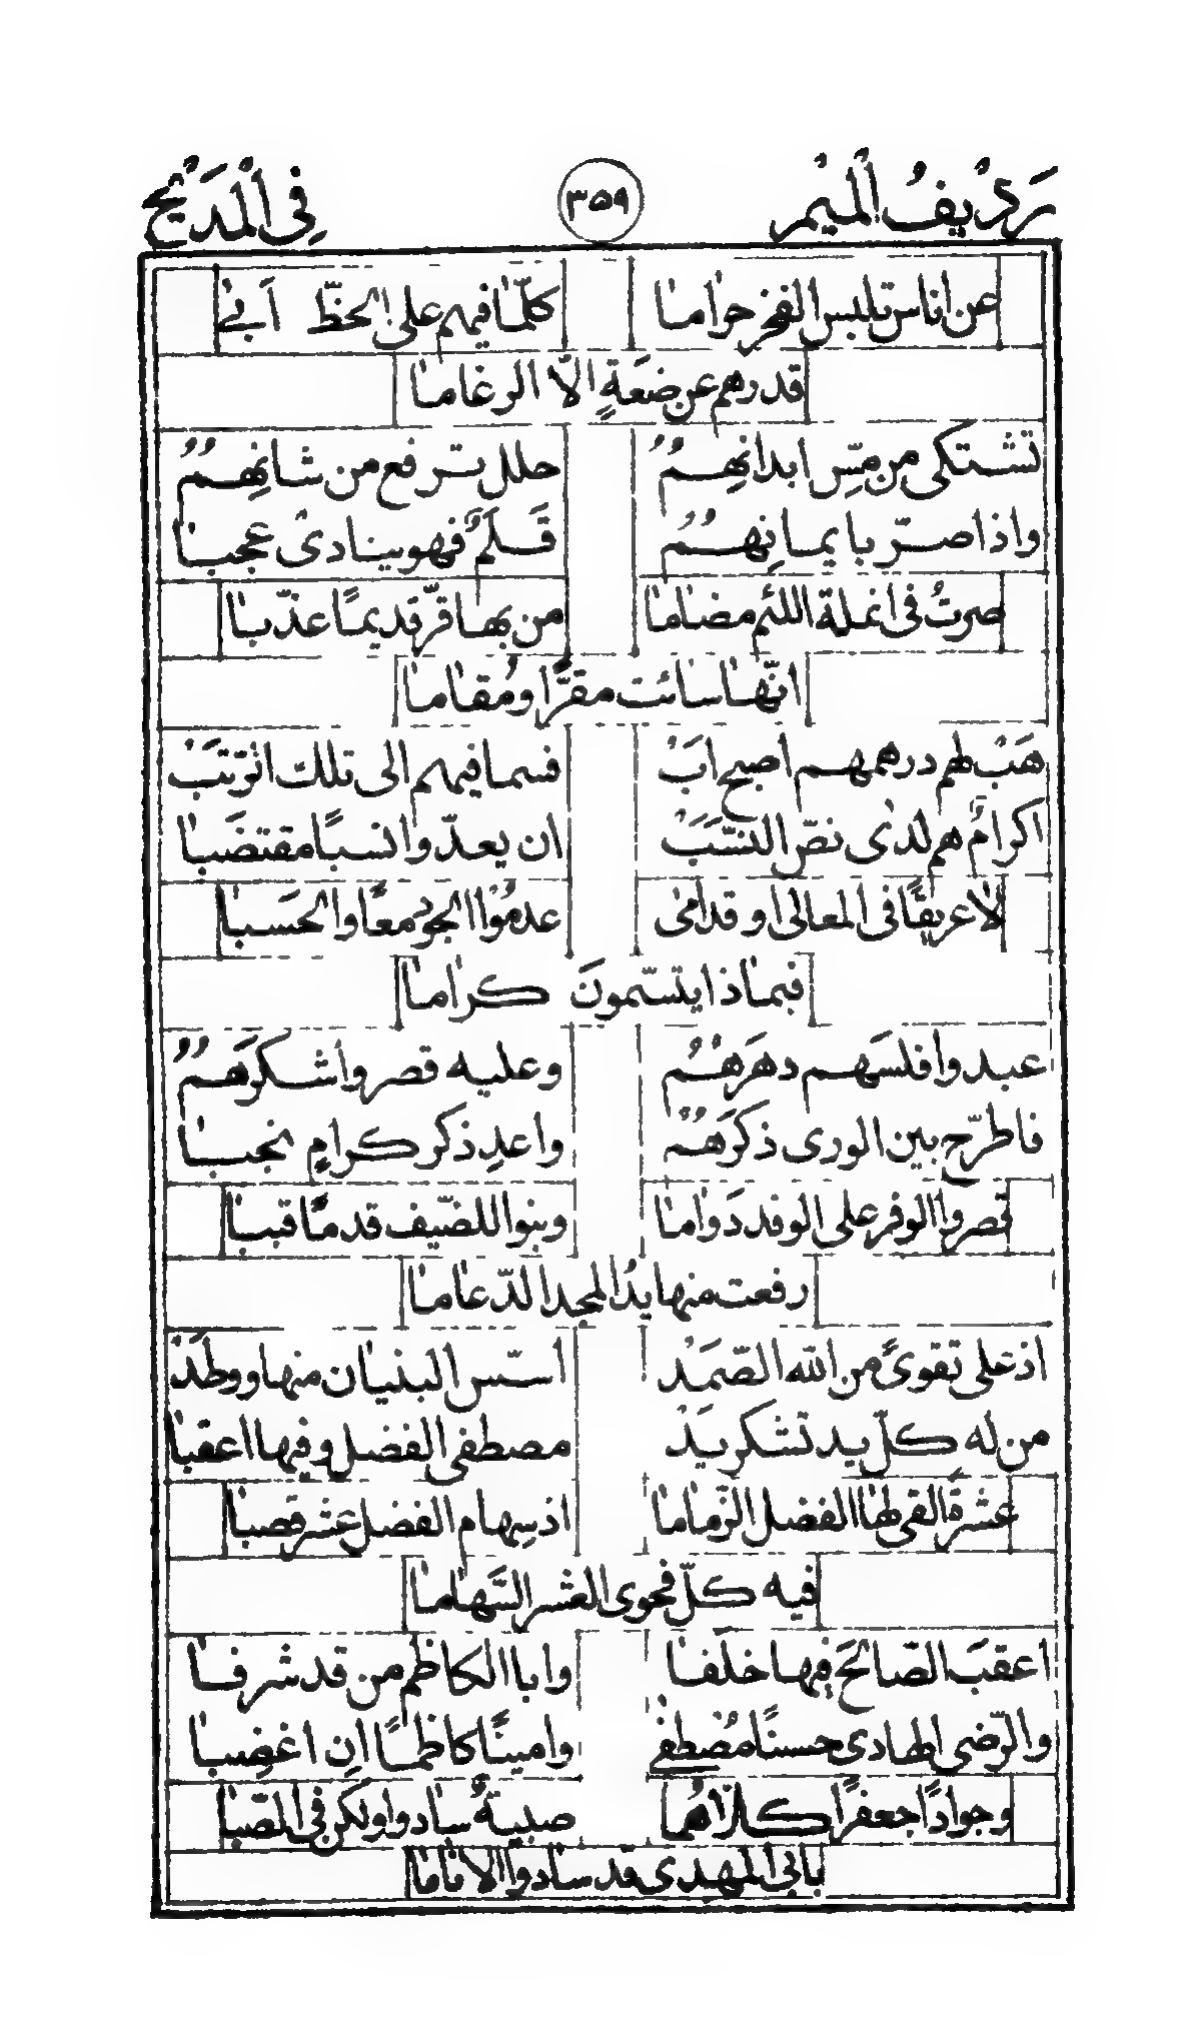 رَدِيْفُ الْمِيْمِ ٣٥٩ فِى الْمَدِيْحِ
عن اناس تلبس الفخر حراما كلّما فيهم على الحظّ اَبىٰ
قدرهم عن ضعَةٍ الّا الرغاما
تشتكى من مسِّ ابدانِهِمُ حلل ترفع من شانِهِمُ
واذا صرّ بايمانِهُمُ قَلَمٌ فهو ينادى عجبا
صرتُ فى انملة اللئم مضاما من بها قرّ قديمًا عذّبا
انّها سائت مقرًّا ومُقاما
هَبْ لهم درهمهم اصبح اَبْ فسما فيهم الى تلك الرّتَبْ
اكرامٌ هم لدى نصّ النسَبْ ان يعدّوا نسبًا مقتضَبا
لا عريقًا فى المعالى او قدامى عدمُوا الجود معًا والحَسبا
فبماذا يتسّمونَ كراما
عبدوا فلسَهم دهرَهُمُ وعليه قصروا شكرَهُمُ
فاطّرح بين الورى ذكرَهُمُ واعدِ ذكر كرامٍ نجبا
قصروا الوفر على الوفد دَواما وبنوا للضّيف قدمًا قببا
رفعت منها يدُ المجد الدّعاما
اذ على تقوىً من الله الصّمَدْ اسّس البنيان منها ووطَدْ
من له كلّ يد تشكر يَدْ مصطفى الفضل وفيها اعقبا
عشرةً القى لها الفضل الزّماما اذ سهام الفضل عشر قصبا
فيه كلّ فحوى العشر السَّهاما
اعقبَ الصّالحَ فيها خلَفا وابا الكاظم من قد شرفا
والرّضى الهادى حسنًا مُصْطفى وامينًا كاظمًا ان اغضِبا
وجوادًا جعفرًا كلّا هُما صبيةٌ سادوا ولكن فى الصّبا
بابى المهدى قد سادوا الاناما